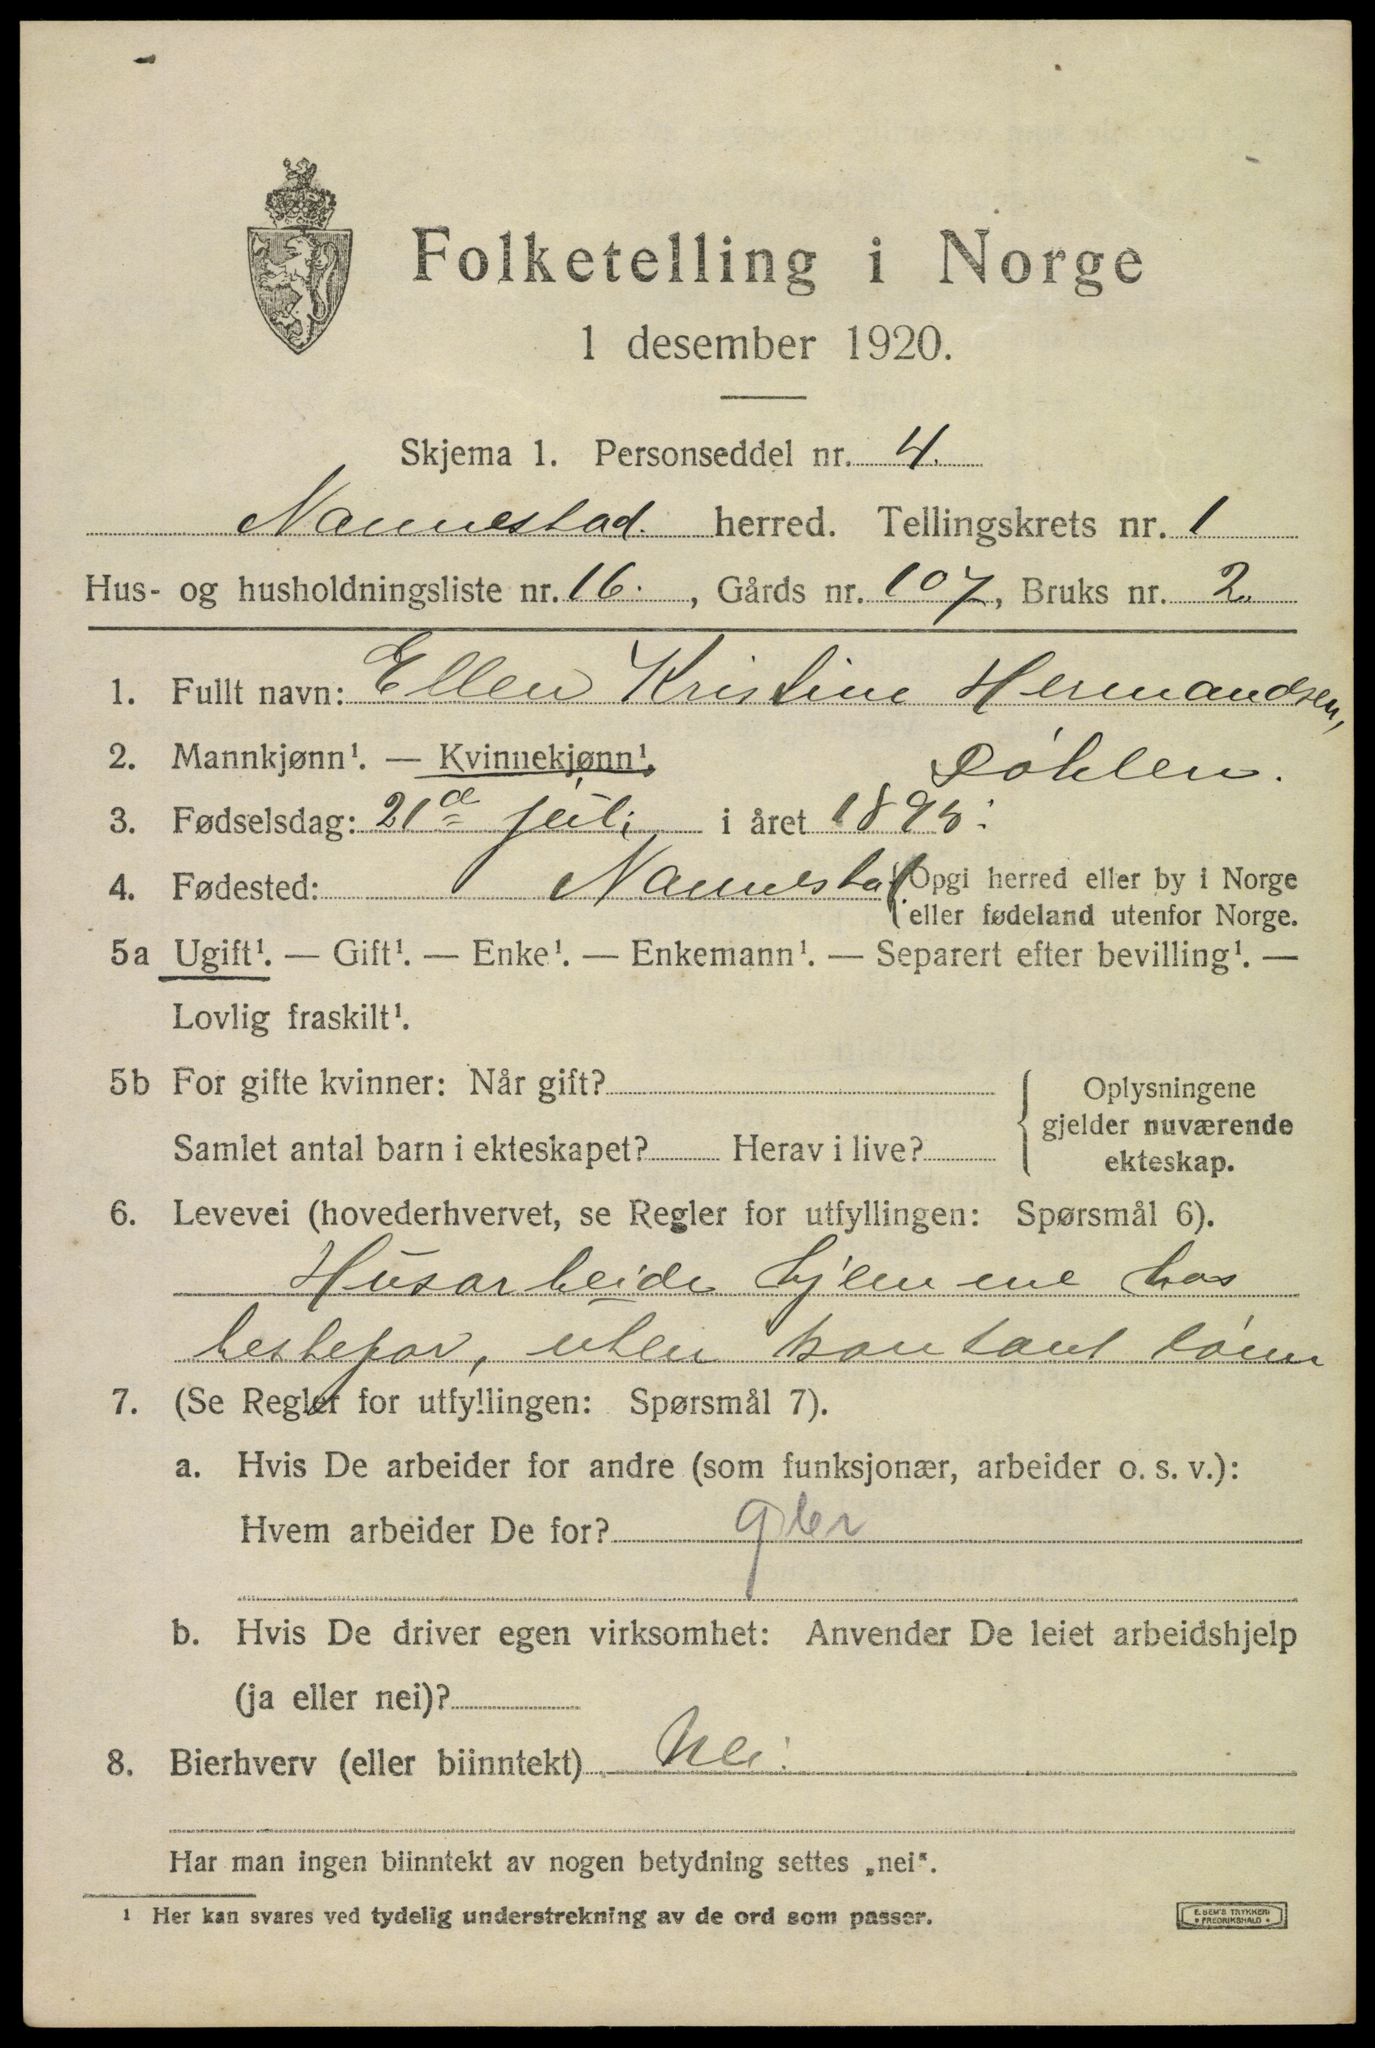 Folketelling i Norge
1 desember 1920.
Skjema 1. Personseddel nr. 4.
Nannestad. herred. Tellingskrets nr. 1
Hus- og husholdningsliste nr. 16. , Gårds nr. 107, Bruks nr. 2.
1. Fullt navn: Ellen Kristine Hermandsen,
2. Mannkjønn¹. — Kvinnekjønn¹. Döhlen.
3. Fødselsdag: 21de juli i året 1895.
4. Fødested: Nannestad Opgi herred eller by i Norge
eller fødeland utenfor Norge.
5a Ugift¹. — Gift¹. — Enke¹. — Enkemann¹. — Separert efter bevilling¹. —
Lovlig fraskilt¹.
5b For gifte kvinner: Når gift?
Samlet antal barn i ekteskapet? Herav i live?
Oplysningene
gjelder nuværende
ekteskap.
6. Levevei (hovederhvervet, se Regler for utfyllingen: Spørsmål 6).
Husarbeide hjemme hos
bestefar, uten kontant lönn
7. (Se Regler for utfyllingen: Spørsmål 7).
a. Hvis De arbeider for andre (som funksjonær, arbeider o. s. v.):
Hvem arbeider De for?
b. Hvis De driver egen virksomhet: Anvender De leiet arbeidshjelp
(ja eller nei)?
8. Bierhverv (eller biinntekt) Nei.
Har man ingen biinntekt av nogen betydning settes „nei".
¹ Her kan svares ved tydelig understrekning av de ord som passer.
E. SEM'S TRYKKERI
FREDRIKSHALD